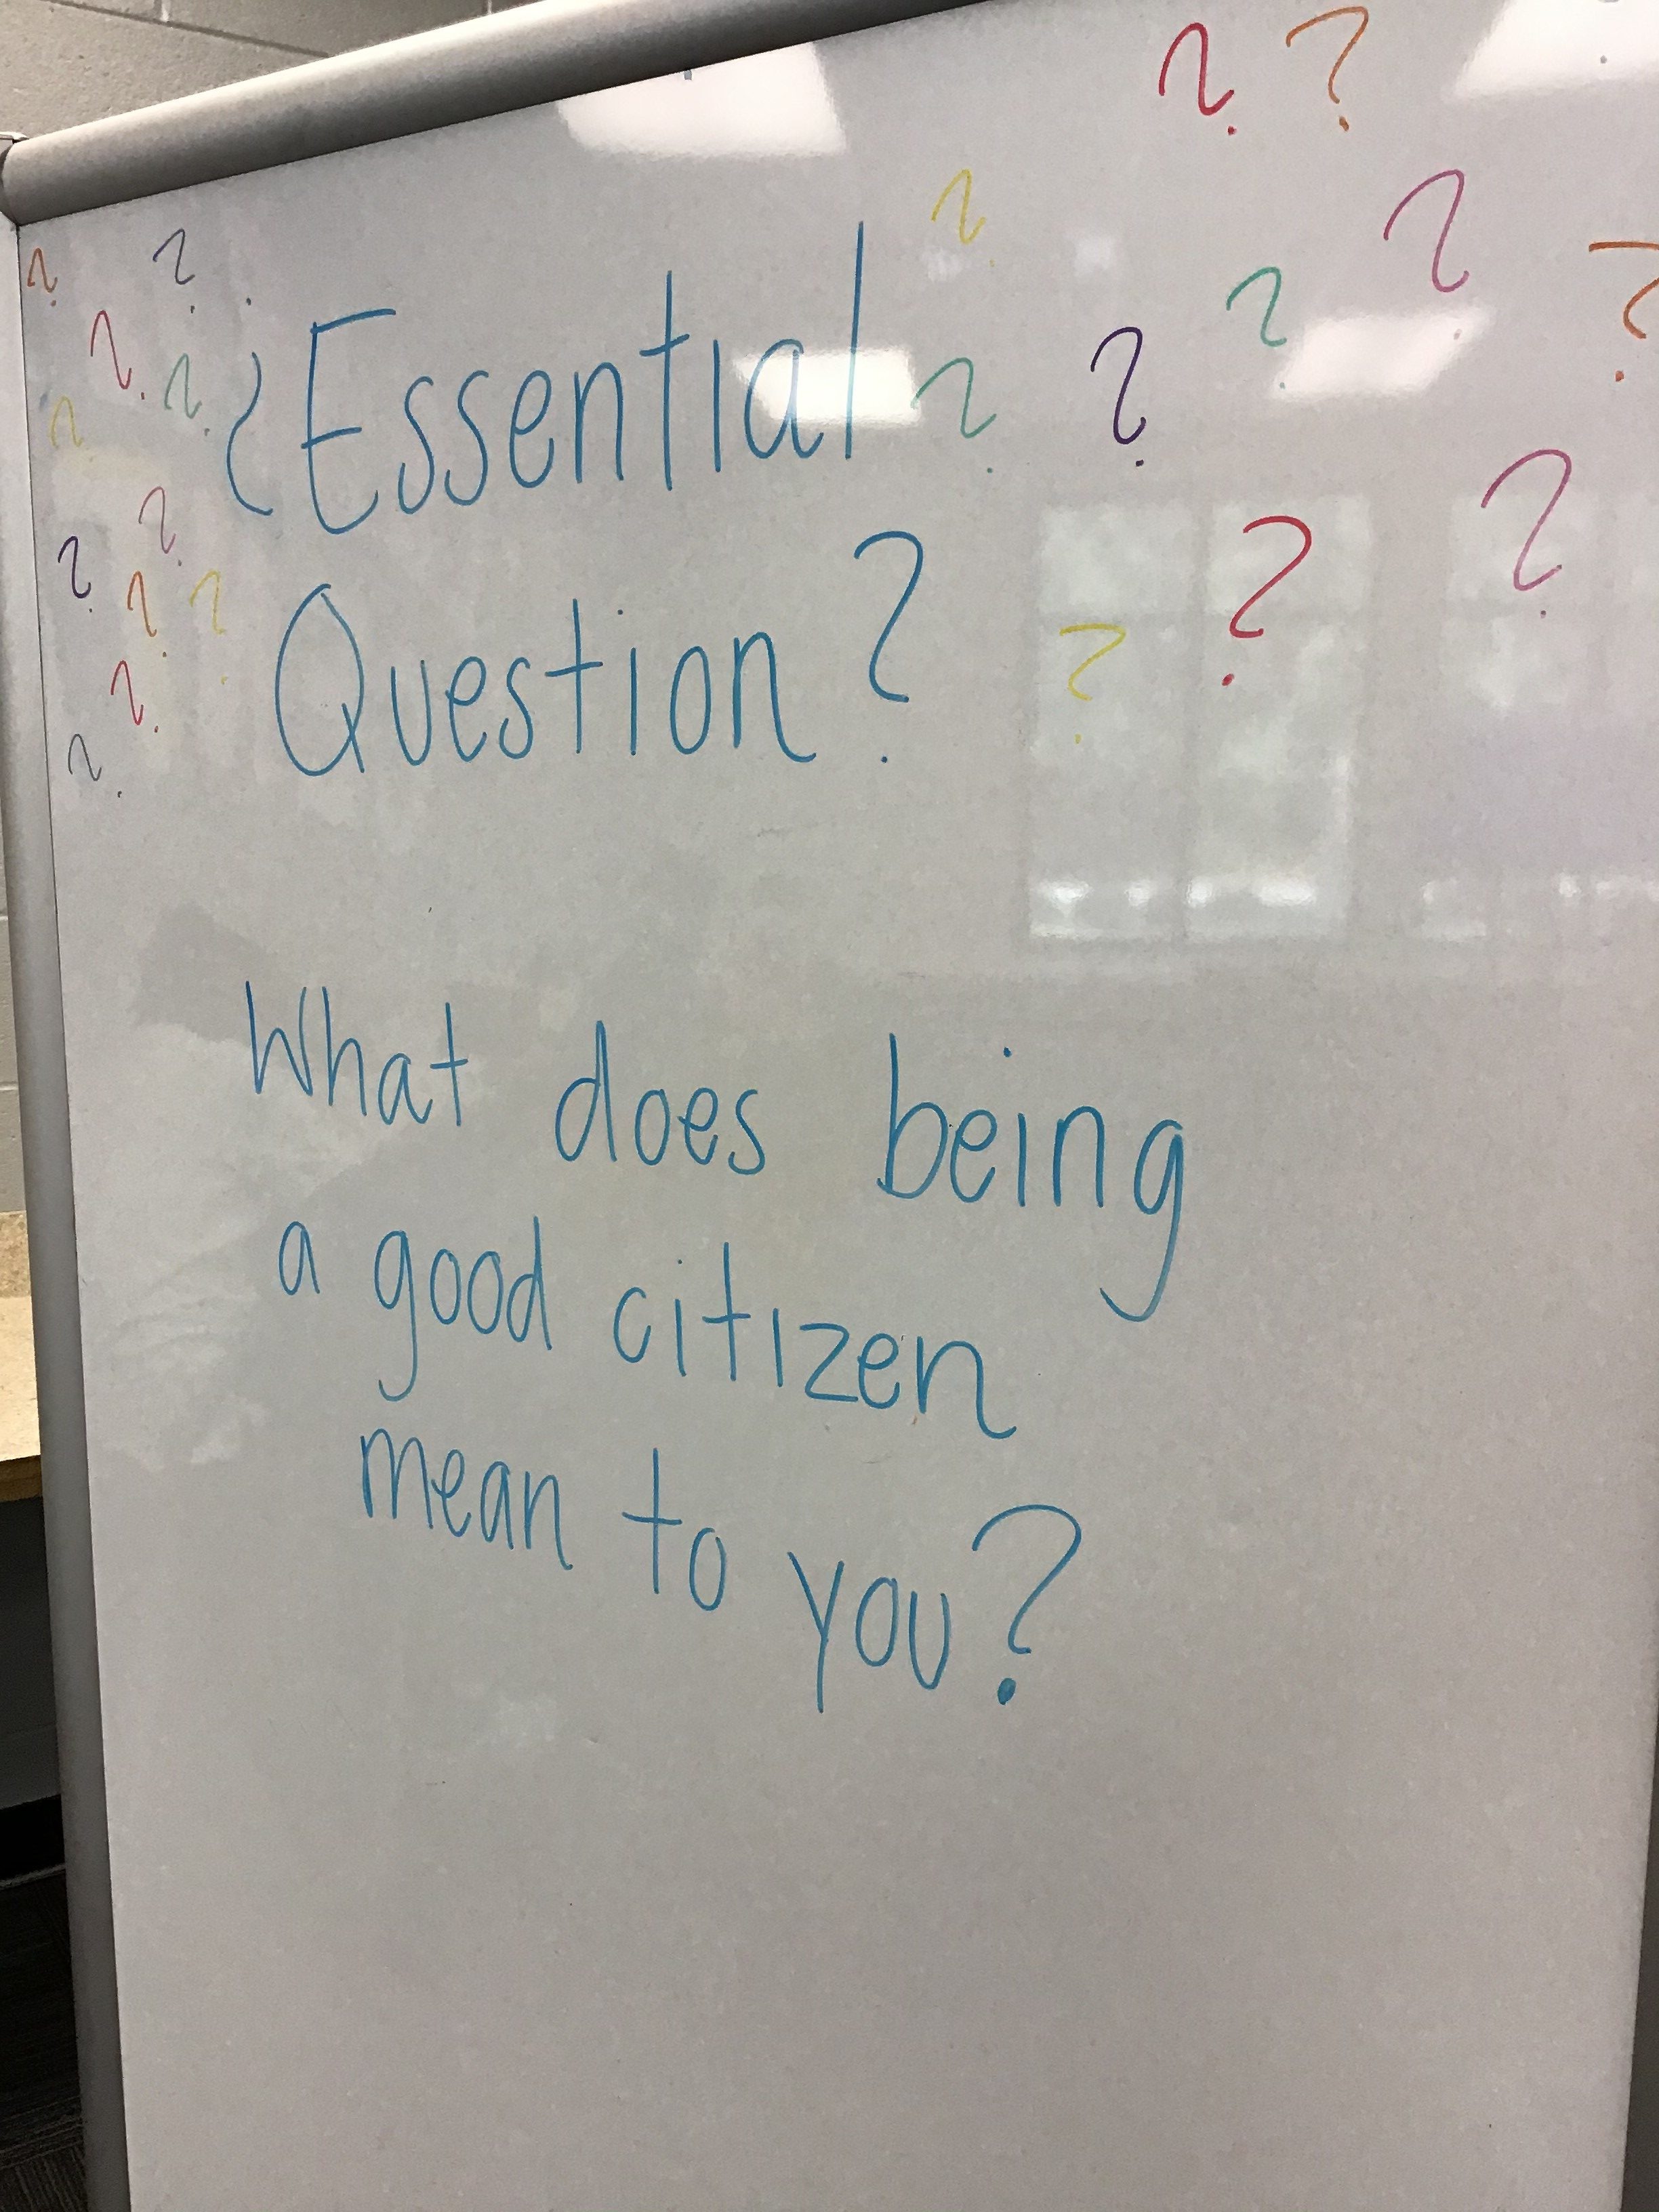 ¿Essential
Question?
What does being
a good citizen
mean to you?